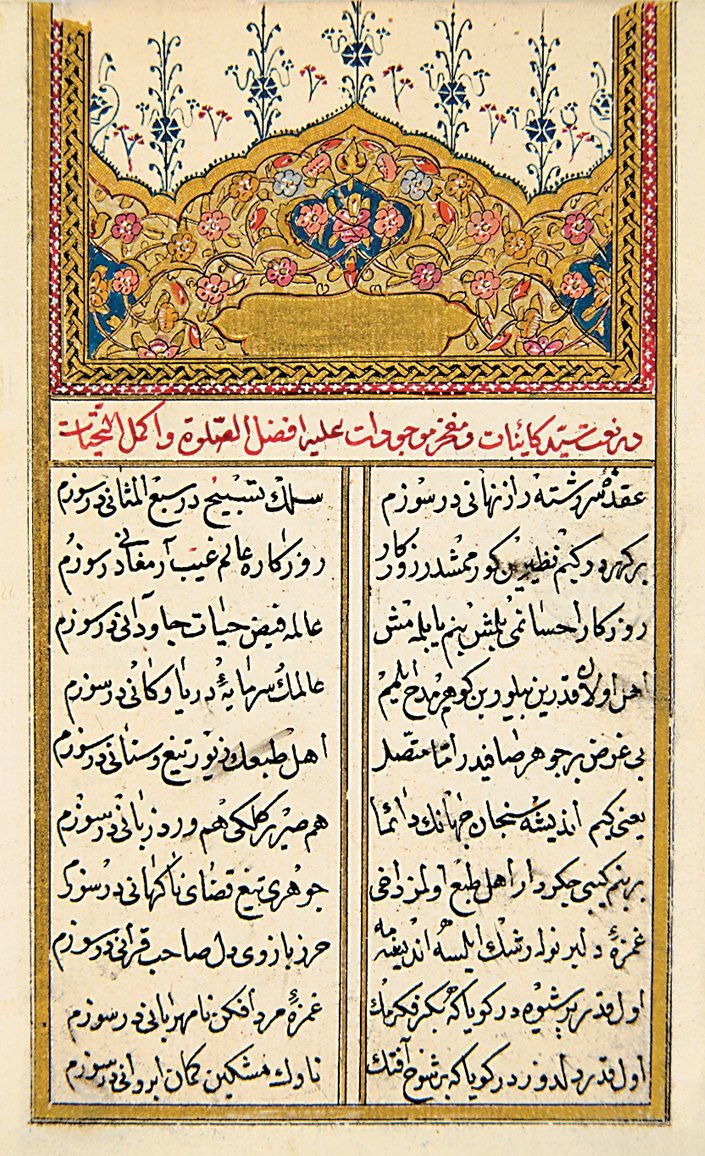 در نعت سيد كائنات و مفخر موجودات عليه افضل الصلوة و اكمل التحيات
عقدهٔ سررشتهٔ راز نهانی در سوزم
سلك تسبيح در سبع المثانی در سوزم
بر كهر در كيم نظيرين كورممشدر روزكار
روزكاره عالم غيب آرمغانی در سوزم
روزكار احسانمی بلمش بنم يا بلمه مش
عالمه فيض حيات جاودانی در سوزم
اهل اولان قدرين بيلور بن كوهرم مدح ايلمم
عالمك سرمايهٔ دريا و كانی در سوزم
بی غرض بر جوهر صافيدر اما متصل
اهل طبعك زيور تيغ و سنانی در سوزم
يعنی كيم انديشه سنجان جهانك دائما
هم صرير كلكی هم ورد زبانی در سوزم
بر بنم كبی جكردار اهل طبع اولمز دخی
جوهری تيغ قضای ناكهانی در سوزم
غمزهٔ دلبر نوله رشك ايلسه انديشه مه
حرز بازوی دل صاحب قرانی در سوزم
اول قدر پر شيوه در كويا كه بكر فكرمك
غمزهٔ مرد افكن نامهربانی در سوزم
اول قدر دلدوز در كويا كه بر شوخ آفتك
ناوك مشكين كمان ابروانی در سوزم